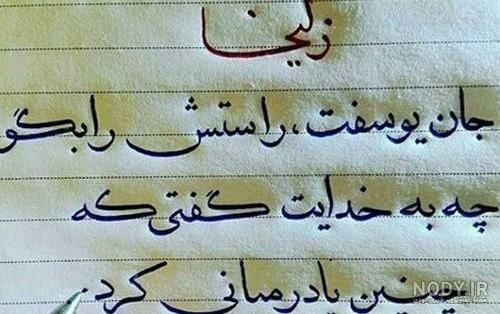 زلیخا
جان یوسفت، راستش را بگو
چه به خدایت گفتی که
چنین پادرمیانی کرد.
NODY.IR